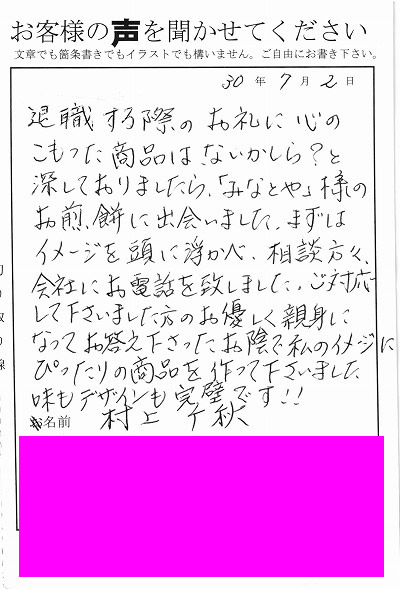 お客様の声を聞かせてください
文章でも箇条書きでもイラストでも構いません。ご自由にお書き下さい。
30年7月2日
退職する際のお礼に心の
こもった商品はないかしら?と
深しておりましたら、「みなとや」様の
お煎餅に出会いました。まずは
イメージを頭に浮かべ、相談方々、
会社にお電話を致しました。ご対応
して下さいました方のお優しく親身に
なってお答え下さったお陰で私のイメージに
ぴったりの商品を作って下さいました
味もデザインも完璧です!!
お名前 村上千秋
切り取り線